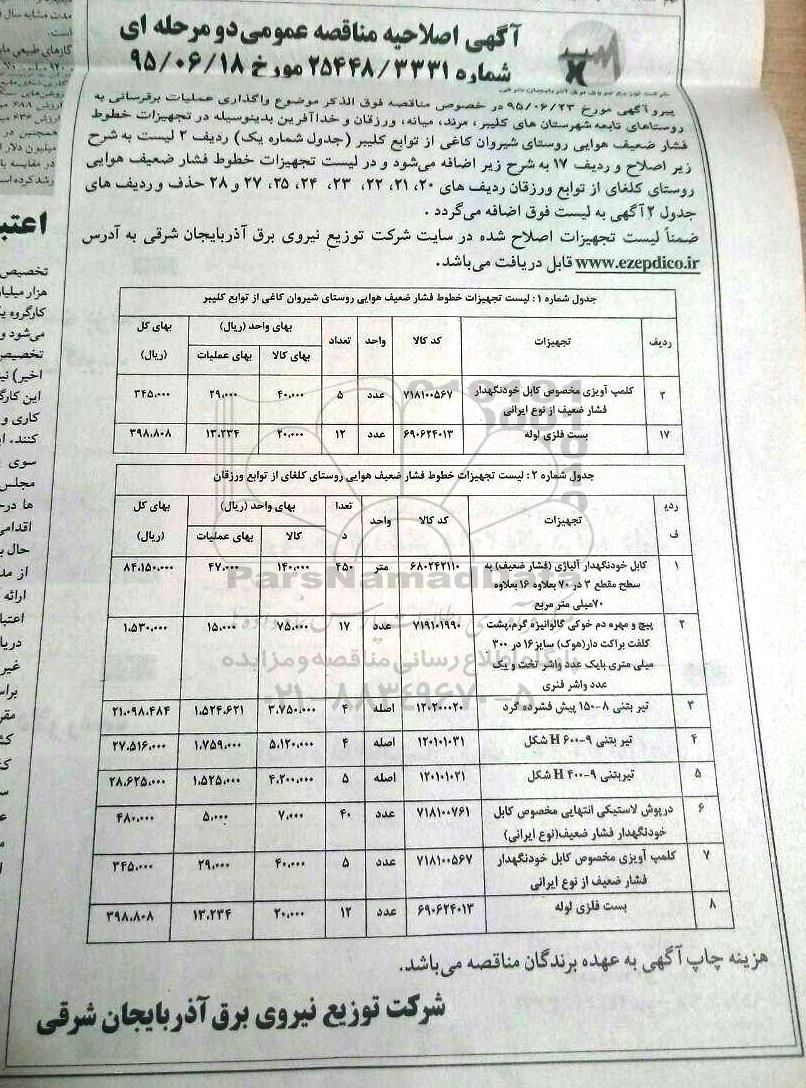 آگهی اصلاحیه مناقصه عمومی دو مرحله ای
شماره ۲۵۴۴۸/۳۳۳۱ مورخ ۹۵/۰۶/۱۸
شرکت توزیع نیروی برق آذربایجان شرقی
پیرو آگهی مورخ ۹۵/۰۶/۲۳ در خصوص مناقصه فوق الذکر موضوع واگذاری عملیات برقرسانی به
روستاهای تابعه شهرستان های کلیبر، مرند، میانه، ورزقان و خداآفرین بدینوسیله در تجهیزات خطوط
فشار ضعیف هوایی روستای شیروان کاغی از توابع کلیبر (جدول شماره یک) ردیف ۲ لیست به شرح
زیر اصلاح و ردیف ۱۷ به شرح زیر اضافه می‌شود و در لیست تجهیزات خطوط فشار ضعیف هوایی
روستای کلغای از توابع ورزقان ردیف های ۲۰، ۲۱، ۲۲، ۲۳، ۲۴، ۲۵، ۲۷ و ۲۸ حذف و ردیف های
جدول ۲ آگهی به لیست فوق اضافه می‌گردد .
ضمناً لیست تجهیزات اصلاح شده در سایت شرکت توزیع نیروی برق آذربایجان شرقی به آدرس
www.ezepdico.ir قابل دریافت می‌باشد.
جدول شماره ۱ : لیست تجهیزات خطوط فشار ضعیف هوایی روستای شیروان کاغی از توابع کلیبر
ردیف تجهیزات کد کالا واحد تعداد بهای واحد (ریال) بهای کل
بهای کالا بهای عملیات (ریال)
۲ کلمپ آویزی مخصوص کابل خودنگهدار ۷۱۸۱۰۰۵۶۷ عدد ۵ ۴۰.۰۰۰ ۲۹.۰۰۰ ۳۴۵.۰۰۰
فشار ضعیف از نوع ایرانی
۱۷ بست فلزی لوله ۶۹۰۶۲۴۰۱۳ عدد ۱۲ ۲۰.۰۰۰ ۱۳.۲۳۴ ۳۹۸.۸۰۸
جدول شماره ۲ : لیست تجهیزات خطوط فشار ضعیف هوایی روستای کلغای از توابع ورزقان
ردی تجهیزات کد کالا واحد تعدا بهای واحد (ریال) بهای کل
ف د کالا بهای عملیات (ریال)
۱ کابل خودنگهدار آلیاژی (فشار ضعیف) به ۶۸۰۲۴۲۱۱۰ متر ۴۵۰ ۱۴۰.۰۰۰ ۴۷.۰۰۰ ۸۴.۱۵۰.۰۰۰
سطح مقطع ۳ در ۷۰ بعلاوه ۱۶ بعلاوه
۷۰میلی متر مربع
۲ پیچ و مهره دم خوکی گالوانیزه گرم،پشت ۷۱۹۱۰۱۹۹۰ عدد ۱۷ ۷۵.۰۰۰ ۱۵.۰۰۰ ۱.۵۳۰.۰۰۰
کلفت براکت دار(هوک) سایز ۱۶ در ۳۰۰
میلی متری بایک عدد واشر تخت و یک
عدد واشر فنری
۳ تیر بتنی ۸-۱۵۰ پیش فشرده گرد ۱۲۰۲۰۰۰۲۰ اصله ۴ ۳.۷۵۰.۰۰۰ ۱.۵۲۴.۶۲۱ ۲۱.۰۹۸.۴۸۴
۴ تیر بتنی ۹-۶۰۰ H شکل ۱۲۰۱۰۱۰۳۱ اصله ۴ ۵.۱۲۰.۰۰۰ ۱.۷۵۹.۰۰۰ ۲۷.۵۱۶.۰۰۰
۵ تیربتنی ۹-۴۰۰ H شکل ۱۲۰۱۰۱۰۲۱ اصله ۵ ۴.۲۰۰.۰۰۰ ۱.۵۲۵.۰۰۰ ۲۸.۶۲۵.۰۰۰
۶ درپوش لاستیکی انتهایی مخصوص کابل ۷۱۸۱۰۰۷۶۱ عدد ۴۰ ۷.۰۰۰ ۵.۰۰۰ ۴۸۰.۰۰۰
خودنگهدار فشار ضعیف(نوع ایرانی)
۷ کلمپ آویزی مخصوص کابل خودنگهدار ۷۱۸۱۰۰۵۶۷ عدد ۵ ۴۰.۰۰۰ ۲۹.۰۰۰ ۳۴۵.۰۰۰
فشار ضعیف از نوع ایرانی
۸ بست فلزی لوله ۶۹۰۶۲۴۰۱۳ عدد ۱۲ ۲۰.۰۰۰ ۱۳.۲۳۴ ۳۹۸.۸۰۸
هزینه چاپ آگهی به عهده برندگان مناقصه می‌باشد.
شرکت توزیع نیروی برق آذربایجان شرقی